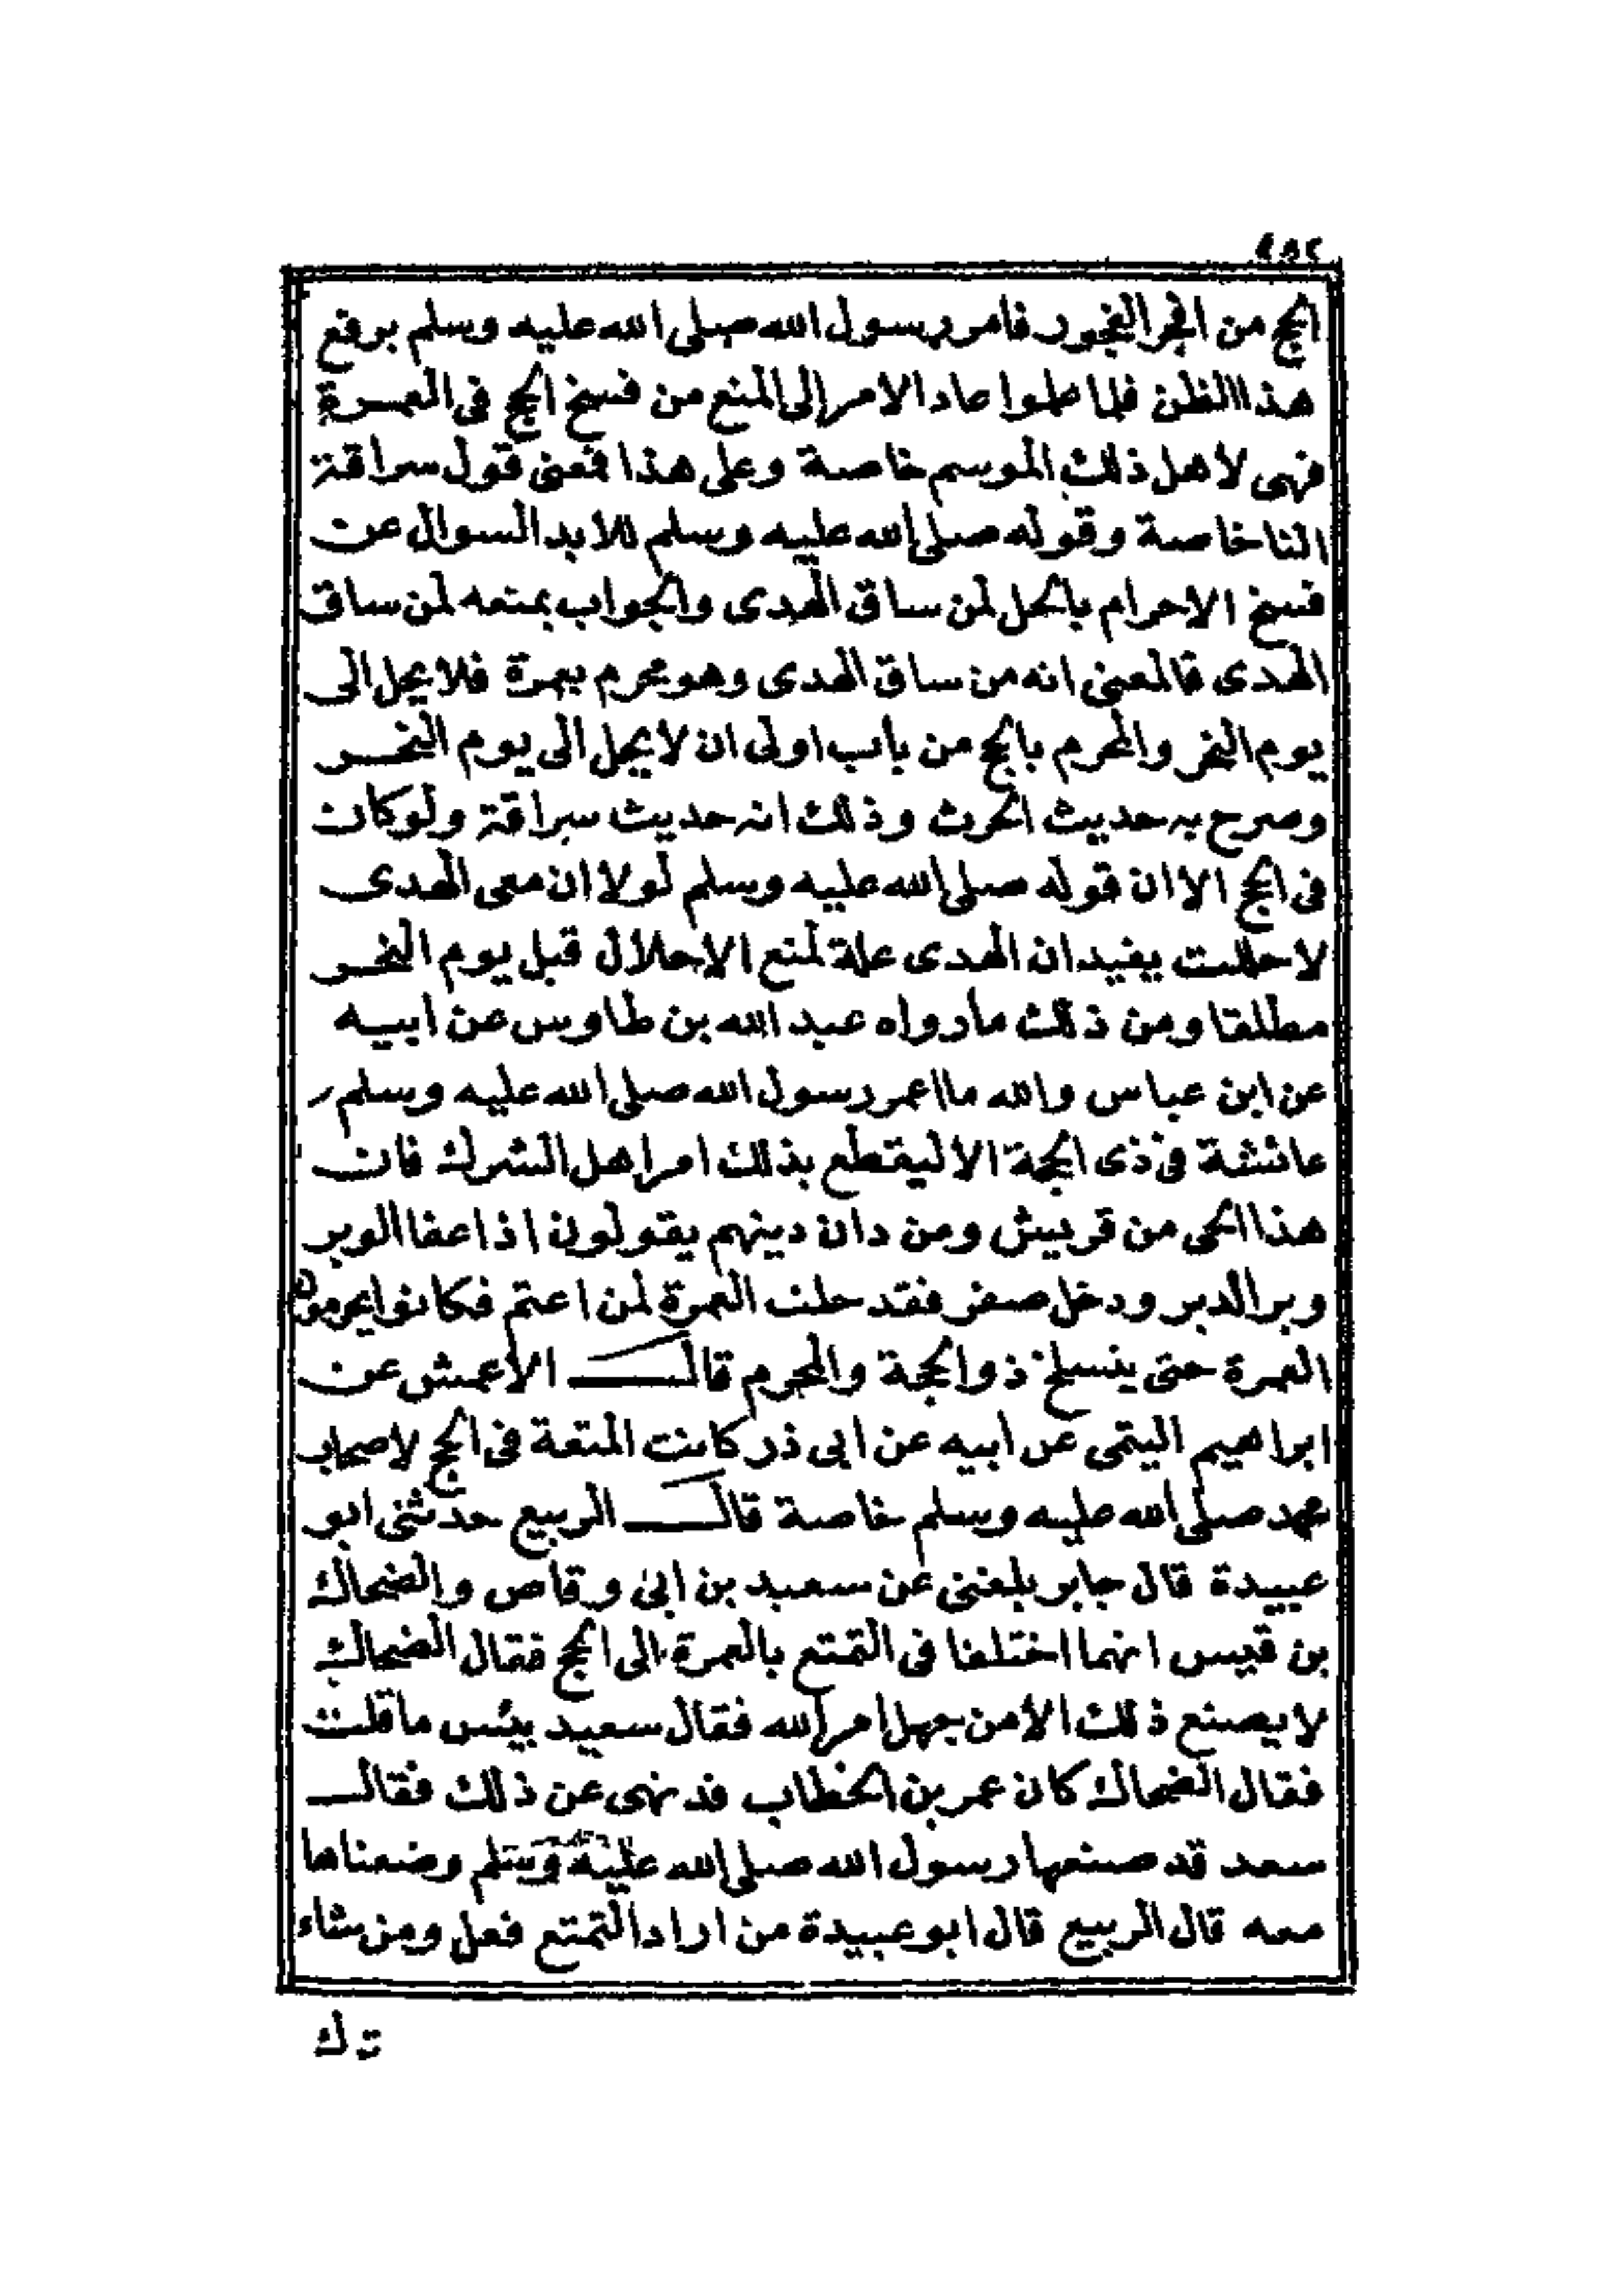 ٤٥٢
الحج من افجر الفجور فامر رسول الله صلى الله عليه وسلم برفع
هذا الظن فلما علموا عاد الامر الى المنع من فسخ الحج فى العمرة
فهى لاهل ذلك الموسم خاصة وعلى هذا فمعنى قول سراقة
النا خاصة وقوله صلى الله عليه وسلم للابد السوال عن
فسخ الاحرام بالحل لمن ساق الهدى والجواب بمنعه لمن ساق
الهدى فالمعنى انه من ساق الهدى وهو محرم بعمرة فلا يحل الى
يوم النحر والمحرم بالحج من باب اولى ان لا يحل الى يوم النحر
وصرح به حديث الحرث وذلك انه حديث سراقة ولو كان
فى الحج الا ان قوله صلى الله عليه وسلم لولا ان معى الهدى
لاحللت يفيد ان الهدى علة لمنع الاحلال قبل يوم النحر
مطلقا ومن ذلك ما رواه عبد الله بن طاوس عن ابيه
عن ابن عباس والله ما اعمر رسول الله صلى الله عليه وسلم
عائشة فى ذى الحجة الا ليقطع بذلك امر اهل الشرك فان
هذا الحى من قريش ومن دان دينهم يقولون اذا عفا الوبر
وبرا الدبر ودخل صفر فقد حلت العمرة لمن اعتمر فكانوا يحرمون
العمرة حتى ينسلخ ذو الحجة والمحرم قال الاعمش عن
ابراهيم التيمى عن ابيه عن ابى ذر كانت المتعة فى الحج لاصحاب
محمد صلى الله عليه وسلم خاصة قال الربيع حدثنى ابو
عبيدة قال جابر بلغنى عن سعيد بن ابى وقاص والضحاك
بن قيس انهما اختلفا فى التمتع بالعمرة الى الحج فقال الضحاك
لا يصنع ذلك الا من جهل امر الله فقال سعيد بيئس ما قلت
فقال الضحاك كان عمر بن الخطاب قد نهى عن ذلك فقال
سعد قد صنعها رسول الله صلى الله عليه وسلم وضعناها
معه قال الربيع قال ابو عبيدة من اراد التمتع فعل ومن شاء